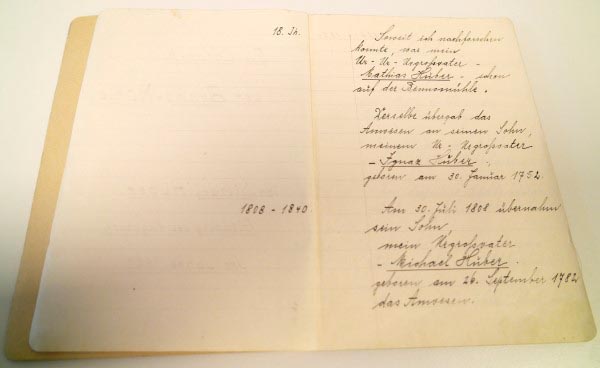 18. Jh.
Soweit ich nachforschen
konnte, war mein
Ur- Ur- Urgroßvater -
Mathias Huber - schon
auf der Bennomühle.
Derselbe übergab das
Anwesen an seinen Sohn,
meinem Ur- Urgroßvater
- Ignaz Huber.
geboren am 30. Januar 1752.
1808 - 1840
Am 30. Juli 1808 übernahm
sein Sohn,
mein Urgroßvater
- Michael Huber.
geboren am 26. September 1782
das Anwesen.